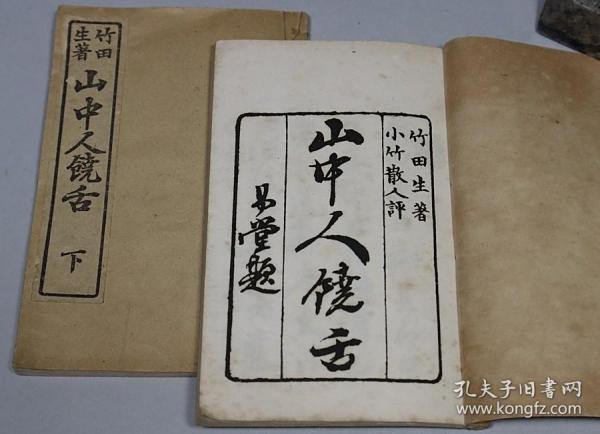 竹田
生著
山中人饒舌
下
竹田生著
小竹散人評
山中人饒舌
易堂題
孔夫子旧書网
www.kongfz.com